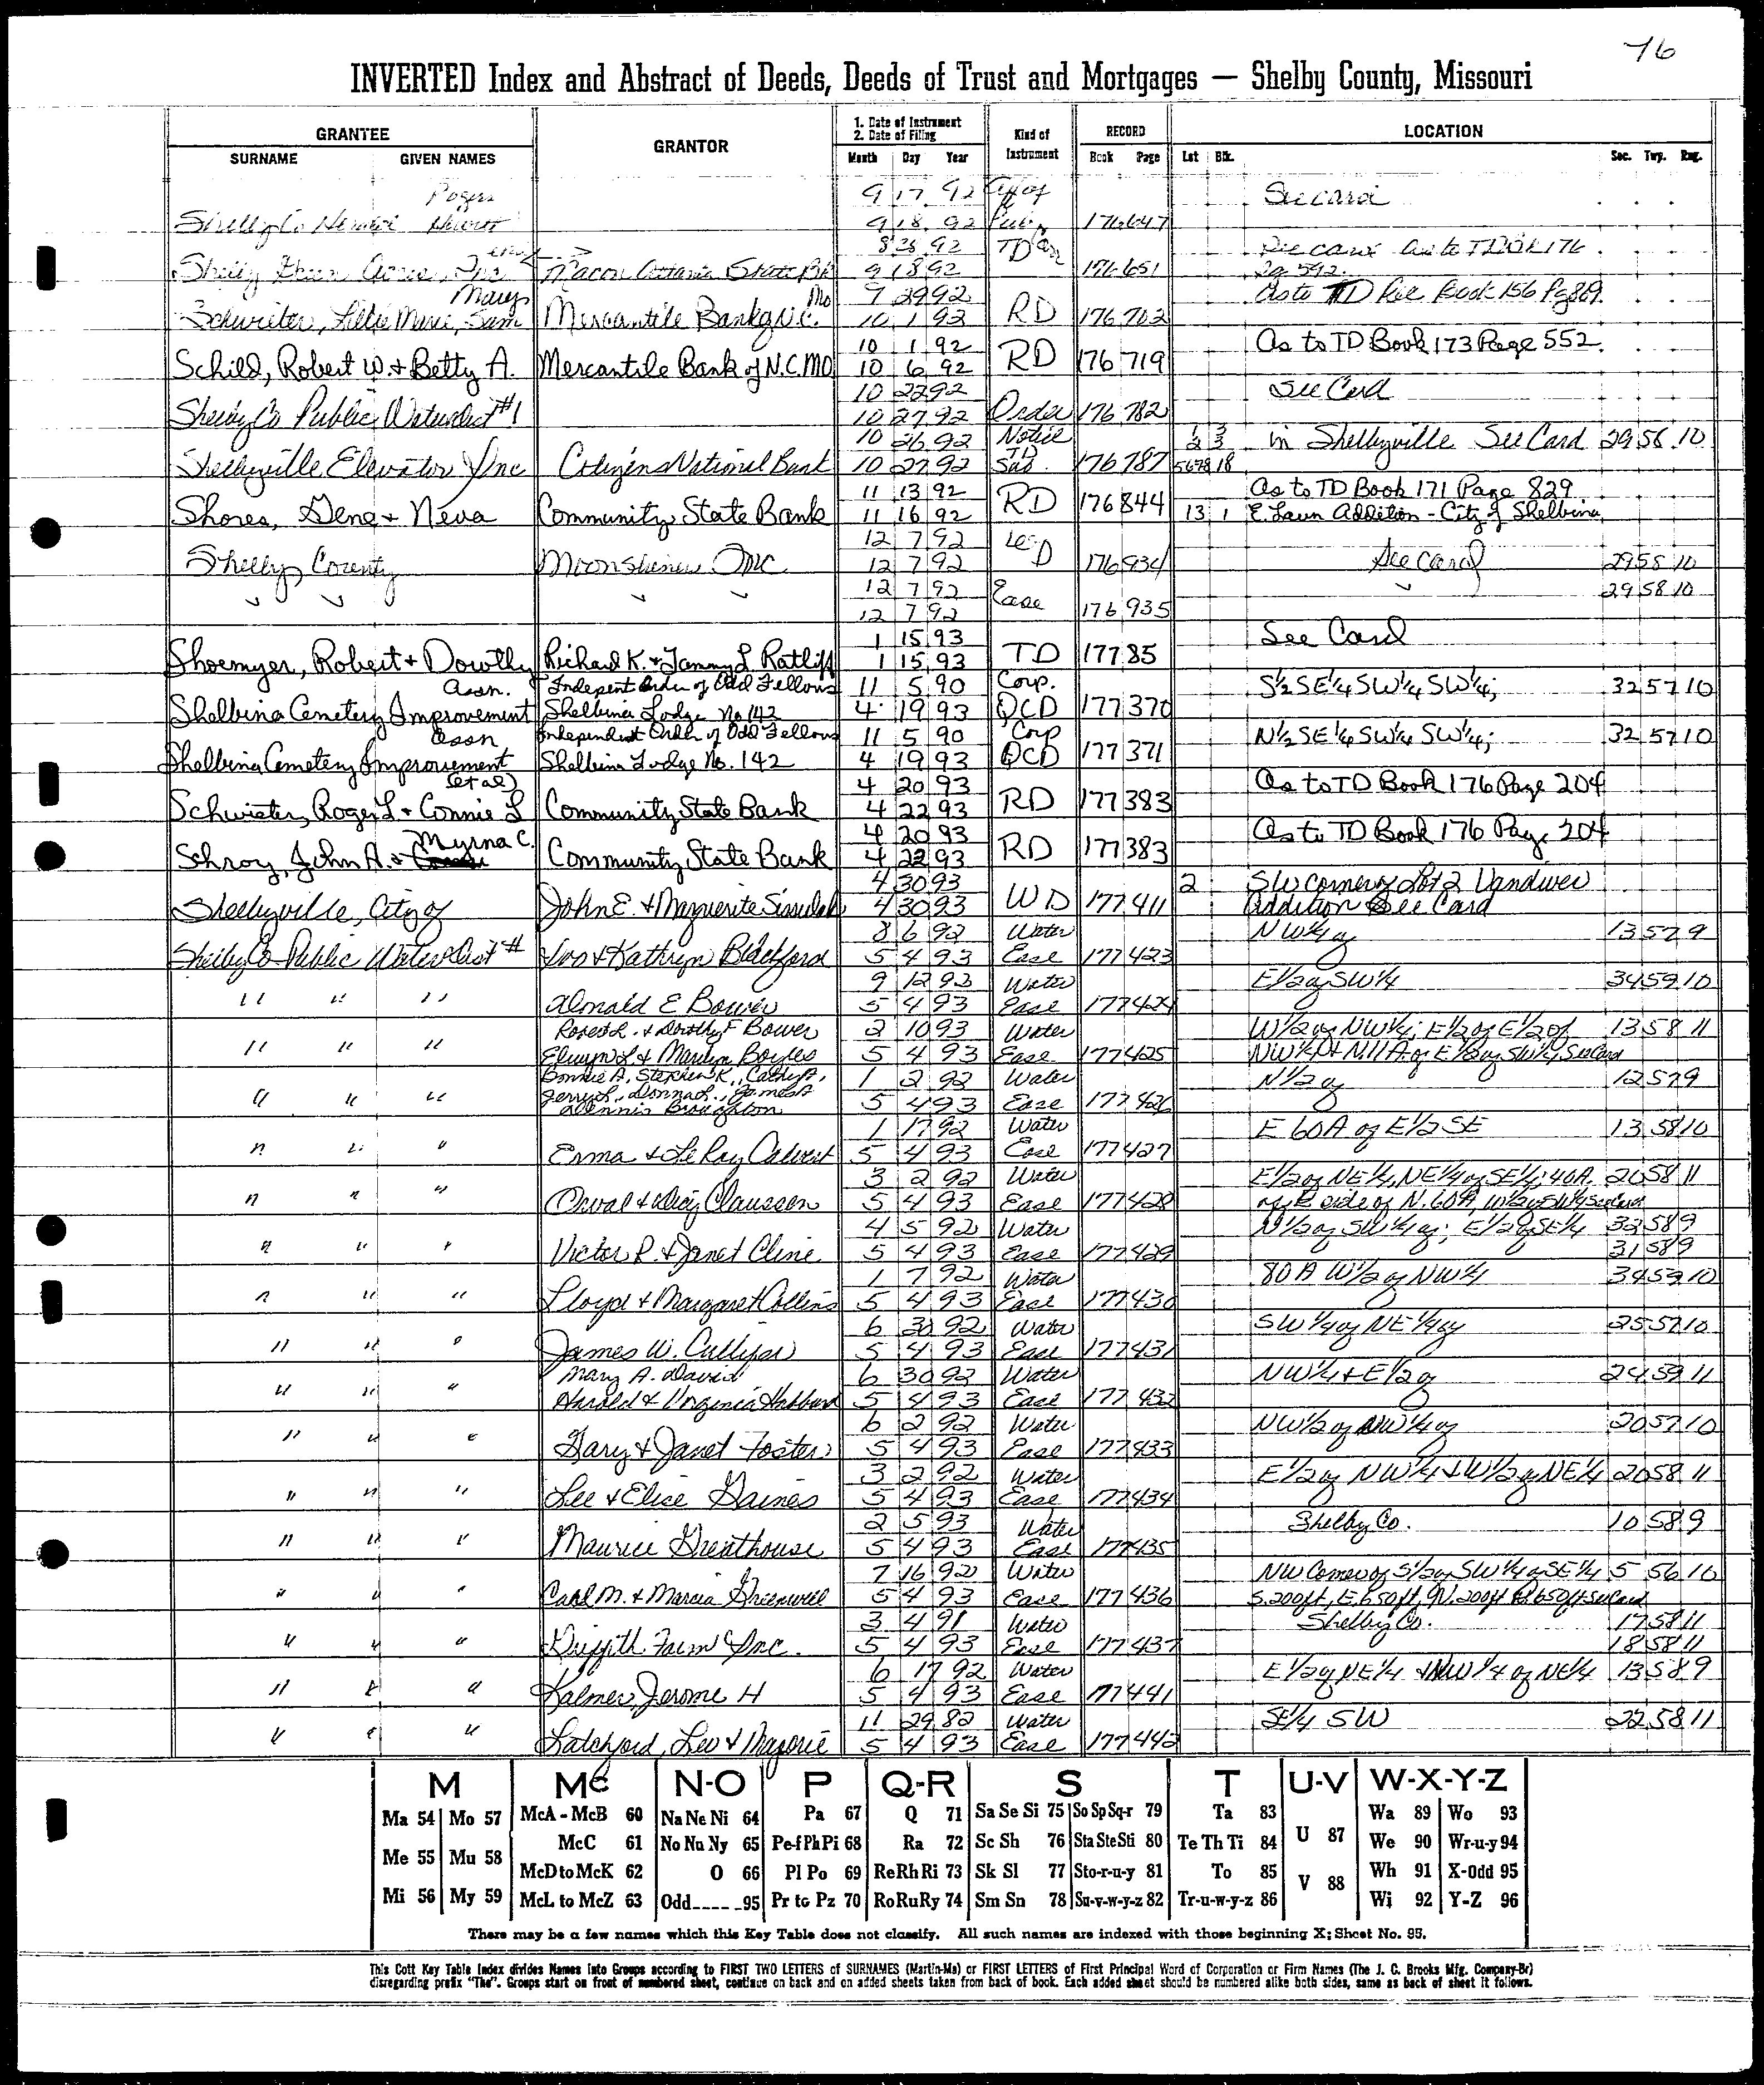 76
INVERTED Index and Abstract of Deeds, Deeds of Trust and Mortgages — Shelby County, Missouri
GRANTEE GRANTOR 1. Date of Instrument 2. Date of Filing Kind of Instrument RECORD LOCATION
SURNAME GIVEN NAMES Month Day Year Book Page Lot Blk. Sec. Twp. Rng.
9 17 92 Aff of See card
Shelby Co 9 18 92 Pub 176 647
8 26 92 TD See card as to TD BK 176
Shelby Acres, Inc Macon State Bk 9 18 92 176 651 Pg 592
Mary Mo 9 29 92 As to TD Rec Book 156 Pg 869
Schwieter, Lillie Marie, Sam Mercantile Bank of N.C. 10 1 92 RD 176 702
10 1 92 As to TD Book 173 Page 552
Schild, Robert W. + Betty A. Mercantile Bank of N.C. MO 10 6 92 RD 176 719
10 22 92 See Card
Shelby Co Public Water Dist #1 10 27 92 Order 176 782
10 26 92 Notice 1 3 2 3 in Shelbyville See Card 29 58 10
Shelbyville Elevator Inc Citizens National Bank 10 27 92 TD 176 787 5678 18
11 13 92 As to TD Book 171 Page 829
Shores, Gene + Neva Community State Bank 11 16 92 RD 176 844 13 1 E. Lawn Additon - City of Shelbina
12 7 92
Shelby County Moonshiners Inc. 12 7 92 D 176 934 See Card 29 58 10
12 7 92 29 58 10
12 7 92 Ease 176 935
1 15 93 See Card
Shoemyer, Robert + Dorothy Richard K. + Tammy L Ratliff 1 15 93 TD 177 85
Assn. Indepent Order of Odd Fellows 11 5 90 Corp. S½ SE¼ SW¼ SW¼; 32 57 10
Shelbina Cemetery Improvement Shelbina Lodge No 142 4 19 93 QCD 177 370
Assn Independent Order of Odd Fellows 11 5 90 Corp N½ SE¼ SW¼ SW¼; 32 57 10
Shelbina Cemetery Improvement Shelbina Lodge No. 142 4 19 93 QCD 177 371
(et al) 4 20 93 As to TD Book 176 Page 204
Schwieter, Roger L + Connie L Community State Bank 4 22 93 RD 177 383
Myrna C. 4 20 93 As to TD Book 176 Page 204
Schroy, John A. + Community State Bank 4 22 93 RD 177 383
4 30 93 2 SW corner of Lot 2 Vandiver
Shelbyville, City of John E. + Marguerite 4 30 93 WD 177 411 Addition See Card
8 6 92 Water NW¼ of 13 57 9
Shelby Co Public Water Dist # + Kathryn Blackford 5 4 93 Ease 177 423
9 12 92 Water E½ of SW¼ 34 59 10
" " " Donald E Bower 5 4 93 Ease 177 424
+ Dorothy F Bower 2 10 93 Water W½ of NW¼; E½ of E½ of 13 58 11
" " " Elwyn L + Marilyn Boyles 5 4 93 Ease 177 425 NW¼ + N 11 A. of E½ of SW¼ See Card
Bonnie A, Stephen K., Cathy A, 1 2 92 Water N½ of 12 57 9
" " " Jerry L, Donna L., James A 5 4 93 Ease 177 426
Dennis Broughton
1 17 92 Water E 60A of E½ SE 13 58 10
" " " Erma + LeRoy Calvert 5 4 93 Ease 177 427
3 2 92 Water E½ of NE¼, NE¼ of SE¼; 40A. 20 58 11
" " " Orval + Claussen 5 4 93 Ease 177 428 of E side of N. 60A, W½ of SW¼ See Card
4 5 92 Water N½ of SW¼ of; E½ of SE¼ 32 58 9
" " " Victor R. + Janet Cline 5 4 93 Ease 177 429 31 58 9
1 7 92 Water 80 A W½ of NW¼ 34 59 10
" " " Lloyd + Margaret Collins 5 4 93 Ease 177 430
6 30 92 Water SW¼ of NE¼ of 25 57 10
" " " James W. 5 4 93 Ease 177 431
Mary A. David 6 30 92 Water NW¼ + E½ of 24 59 11
" " " Harold + Virginia Hubbard 5 4 93 Ease 177 432
6 2 92 Water NW½ of NW¼ of 20 57 10
" " " Gary + Janet Foster 5 4 93 Ease 177 433
3 2 92 Water E½ of NW¼ + W½ of NE¼ 20 58 11
" " " Lee + Elise Gaines 5 4 93 Ease 177 434
2 5 93 Water Shelby Co. 10 58 9
" " " Maurice Greathouse 5 4 93 Ease 177 435
7 16 92 Water NW Corner of S½ of SW¼ of SE¼ 5 56 10
" " " Carl M. + Marcia Greenwell 5 4 93 Ease 177 436 S. 200ft, E. 650ft, N. 200ft 650ft See Card
3 4 91 Water Shelby Co. 17 58 11
" " " Griffith Farm Inc. 5 4 93 Ease 177 437 18 58 11
6 17 92 Water E½ of NE¼ + NW¼ of NE¼ 13 58 9
" " " Kalmer, Jerome H 5 4 93 Ease 177 441
11 29 82 Water SE¼ SW 22 58 11
" " " Latchford, Leo + Marjorie 5 4 93 Ease 177 442
M Mc N-O P Q-R S T U-V W-X-Y-Z
Ma 54 Mo 57 McA - McB 60 Na Ne Ni 64 Pa 67 Q 71 Sa Se Si 75 So Sp Sq-r 79 Ta 83 Wa 89 Wo 93
McC 61 No Nu Ny 65 Pe-f Ph Pi 68 Ra 72 Sc Sh 76 Sta Ste Sti 80 Te Th Ti 84 U 87 We 90 Wr-u-y 94
Me 55 Mu 58 McD to McK 62 O 66 Pl Po 69 Re Rh Ri 73 Sk Sl 77 Sto-r-u-y 81 To 85 V 88 Wh 91 X-Odd 95
Mi 56 My 59 McL to McZ 63 Odd 95 Pr to Pz 70 Ro Ru Ry 74 Sm Sn 78 Su-v-w-y-z 82 Tr-u-w-y-z 86 Wi 92 Y-Z 96
There may be a few names which this Key Table does not classify. All such names are indexed with those beginning X; Sheet No. 95.
This Cott Key Table Index divides Names into Groups according to FIRST TWO LETTERS of SURNAMES (Martin-Ma) or FIRST LETTERS of First Principal Word of Corporation or Firm Names (The J. C. Brooks Mfg. Company-Br)
disregarding prefix "The". Groups start on front of numbered sheet, continue on back and on added sheets taken from back of book. Each added sheet should be numbered alike both sides, same as back of sheet it follows.